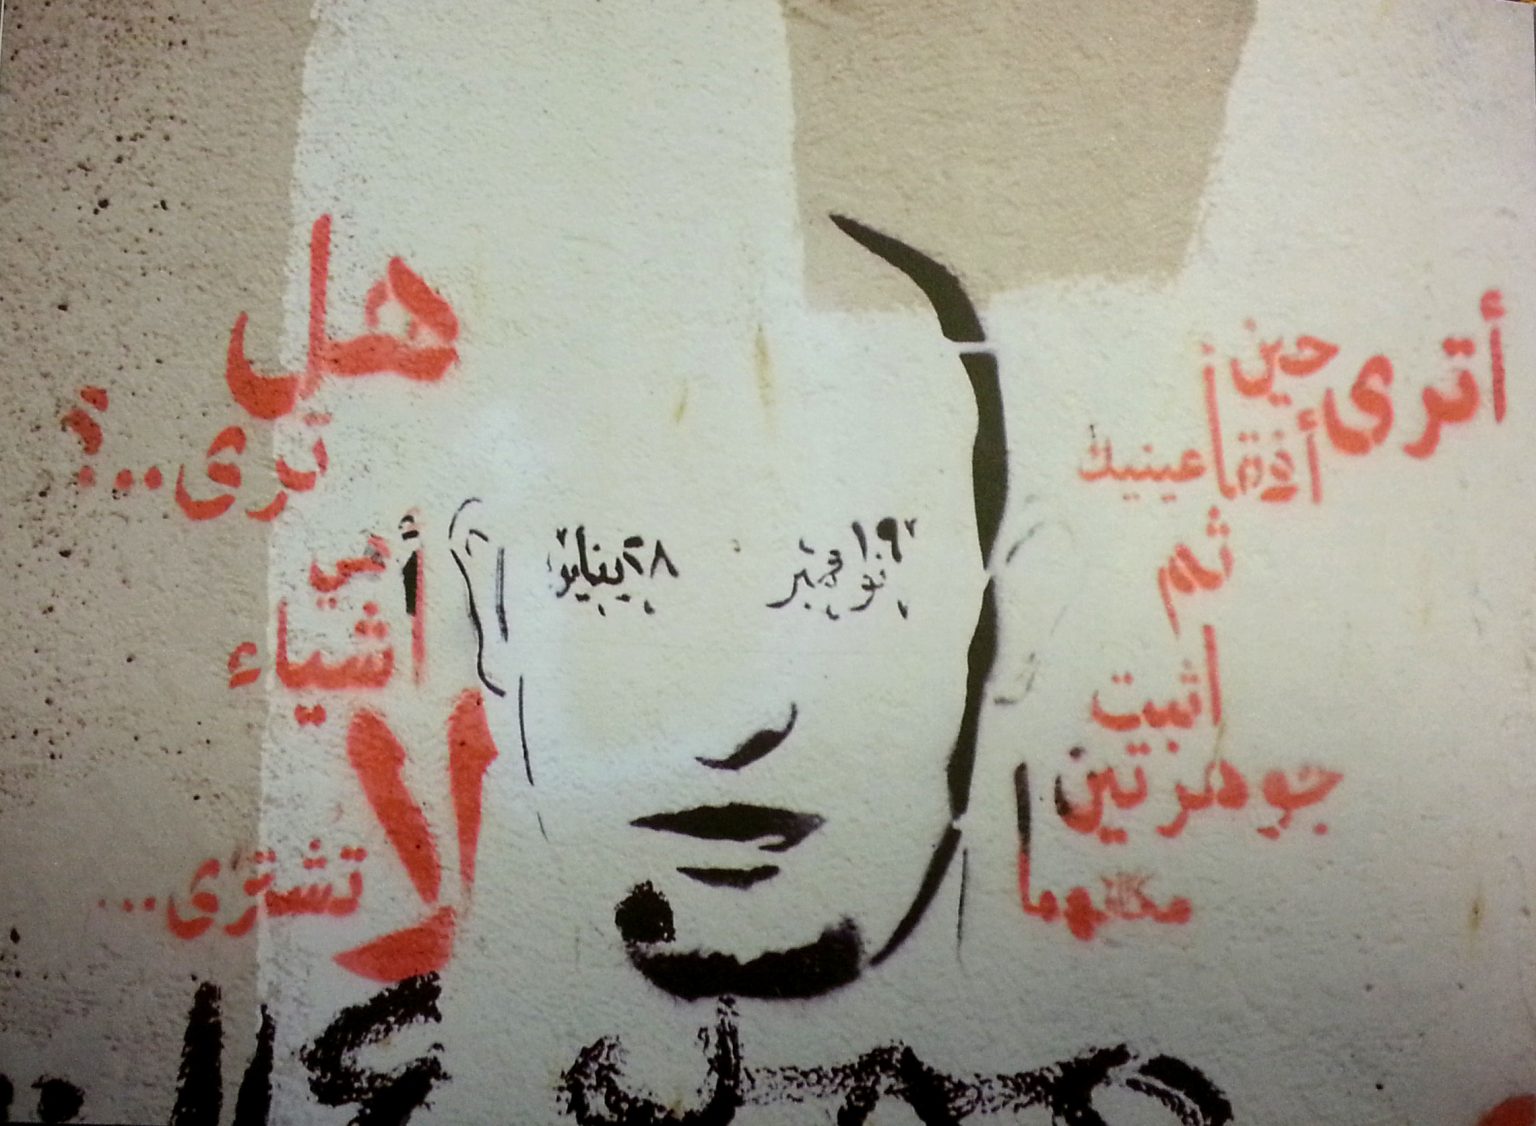 أترى حين
أفقأ عينيك
ثم
اثبت
جوهرتين
مكانهما
هل
ترى..؟
هي
أشياء
لا
تشترى...
١٩ نوفمبر
٢٨ يناير